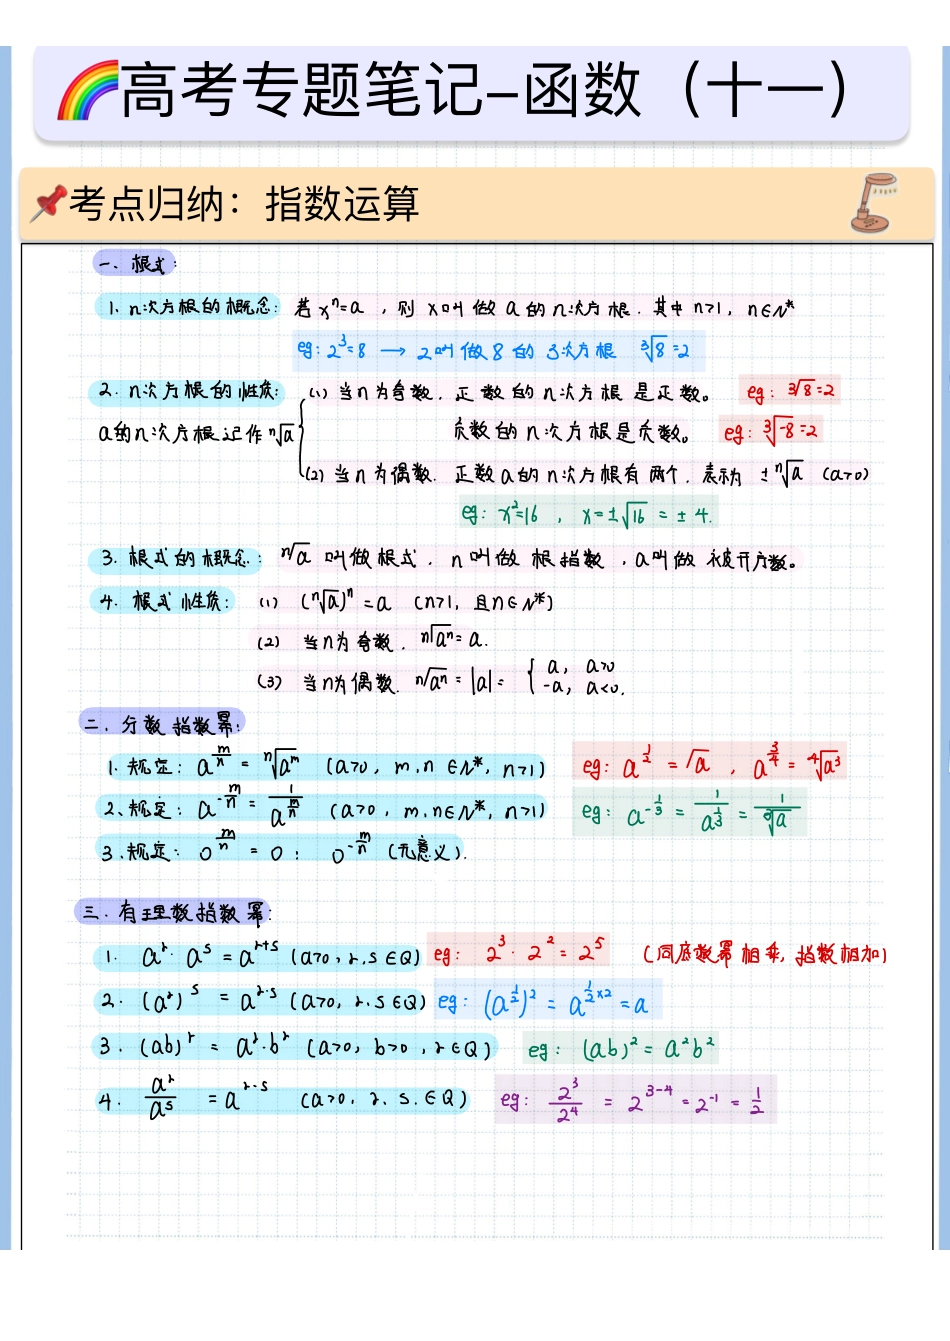 高考专题笔记–函数（十一）
考点归纳：指数运算
一、根式：
1. n次方根的概念：若xⁿ=a，则x叫做a的n次方根．其中n>1，n∈N*
eg：2³=8 → 2叫做8的3次方根 ³√8=2
2. n次方根的性质：(1) 当n为奇数．正数的n次方根是正数。 eg：³√8=2
a的n次方根记作ⁿ√a 负数的n次方根是负数。 eg：³√-8=2
(2) 当n为偶数．正数a的n次方根有两个．表示为 ±ⁿ√a (a>0)
eg：x²=16，x=±√16=±4.
3. 根式的概念：ⁿ√a 叫做根式．n叫做根指数，a叫做被开方数。
4. 根式性质：(1) (ⁿ√a)ⁿ=a (n>1，且n∈N*)
(2) 当n为奇数．ⁿ√aⁿ=a.
(3) 当n为偶数．ⁿ√aⁿ=|a|={a，a>0
-a，a<0.
二．分数指数幂：
1. 规定：a^(m/n)=ⁿ√a^m (a>0，m.n∈N*，n>1) eg：a^(1/2)=√a，a^(3/4)=⁴√a³
2、规定：a^(-m/n)=1/a^(m/n) (a>0，m.n∈N*，n>1) eg：a^(-1/3)=1/a^(1/3)=1/³√a
3.规定：0^(m/n)=0；0^(-m/n) (无意义).
三．有理数指数幂：
1. a^r·a^s=a^(r+s) (a>0，r.s∈Q) eg：2³·2²=2⁵ (同底数幂相乘，指数相加)
2. (a^r)^s=a^(r·s) (a>0，r.s∈Q) eg：(a^(1/2))²=a^(1/2×2)=a
3. (ab)^r=a^r·b^r (a>0，b>0，r∈Q) eg：(ab)²=a²b²
4. a^r/a^s=a^(r-s) (a>0，r、s.∈Q) eg：2³/2⁴=2^(3-4)=2^(-1)=1/2